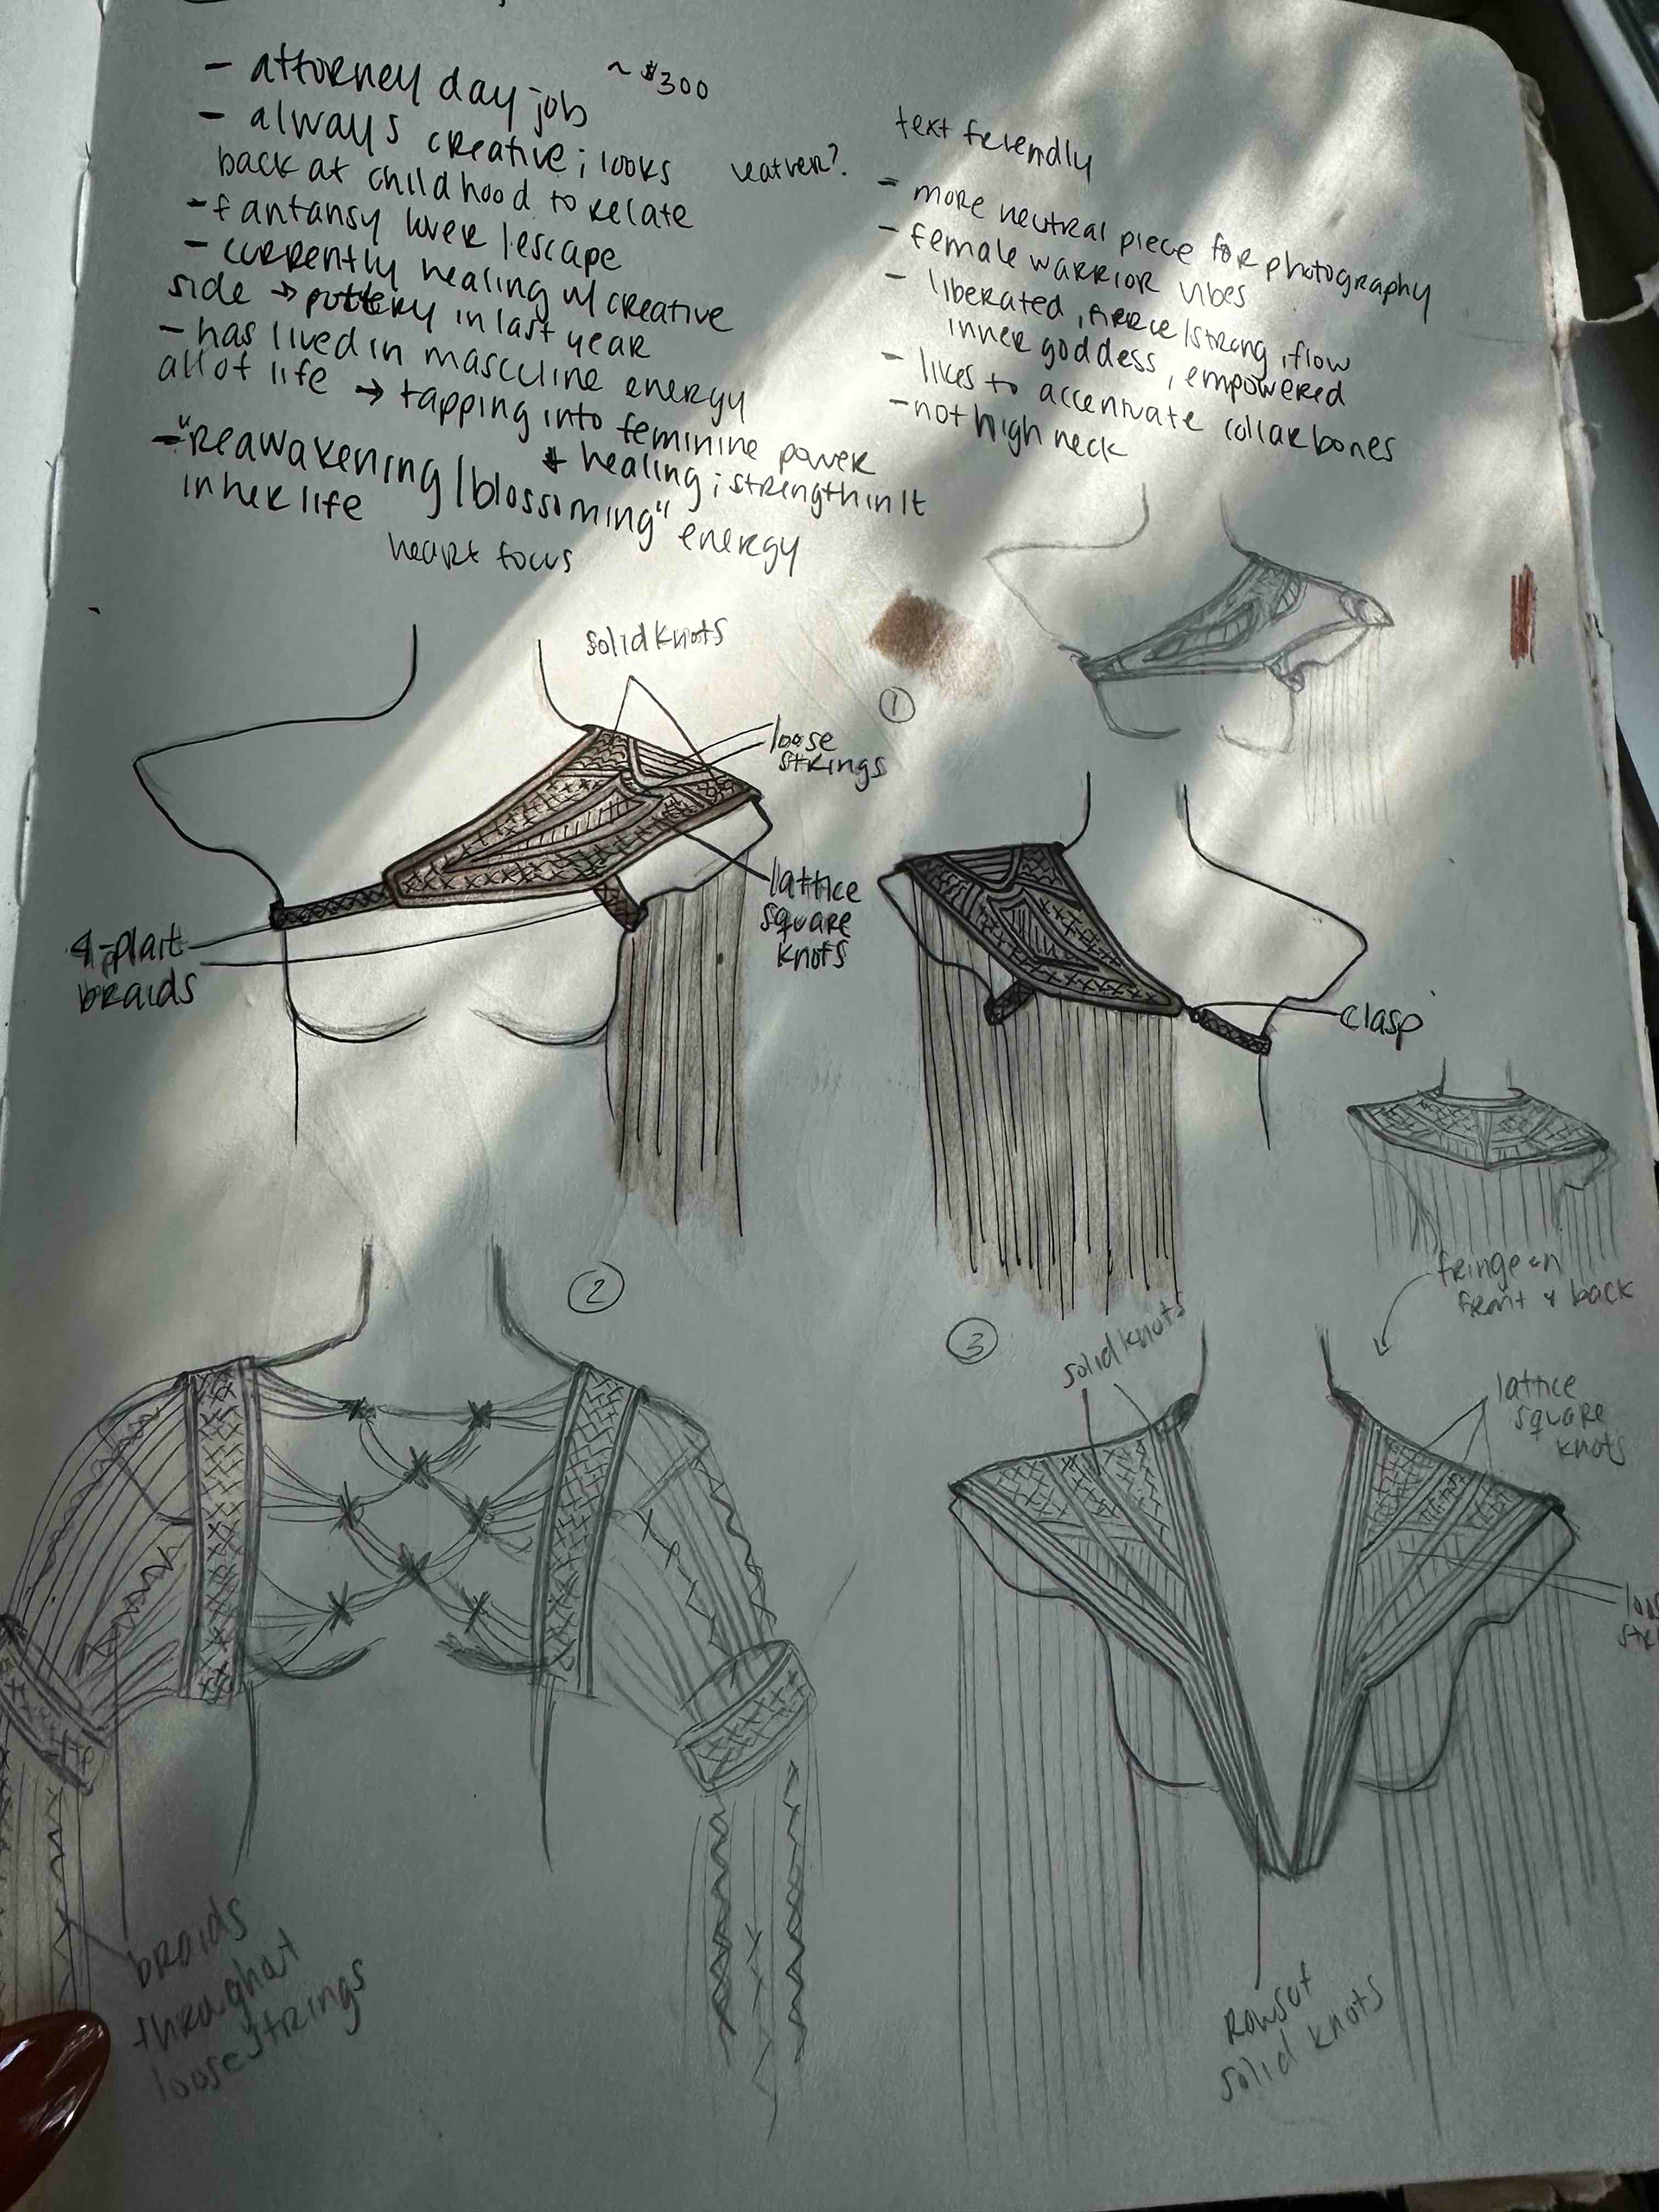 - attorney day job
~ $300
- always creative; looks
back at childhood to relate
- fantansy lover / escape
- currently healing w/ creative
side → pottery in last year
- has lived in masculine energy
all of life → tapping into feminine power
+ healing; strengthin it
- "Reawakening / blossoming" energy
in her life
heart focus
leather?
text fériendly
- more neutral piece for photography
- female warrior vibes
- liberated, fierce/strong, flow
inner goddess, empowered
- likes to accentuate collar bones
- not high neck
solid knots
loose
strings
lattice
square
knots
4-plait
braids
1
clasp
fringe on
front & back
2
braids
throughout
loose strings
3
solid knots
lattice
square
knots
rows of
solid knots